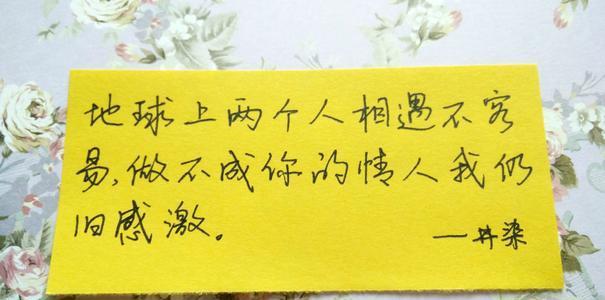 地球上两个人相遇不容
易,做不成你的情人我仍
旧感激。
—井染